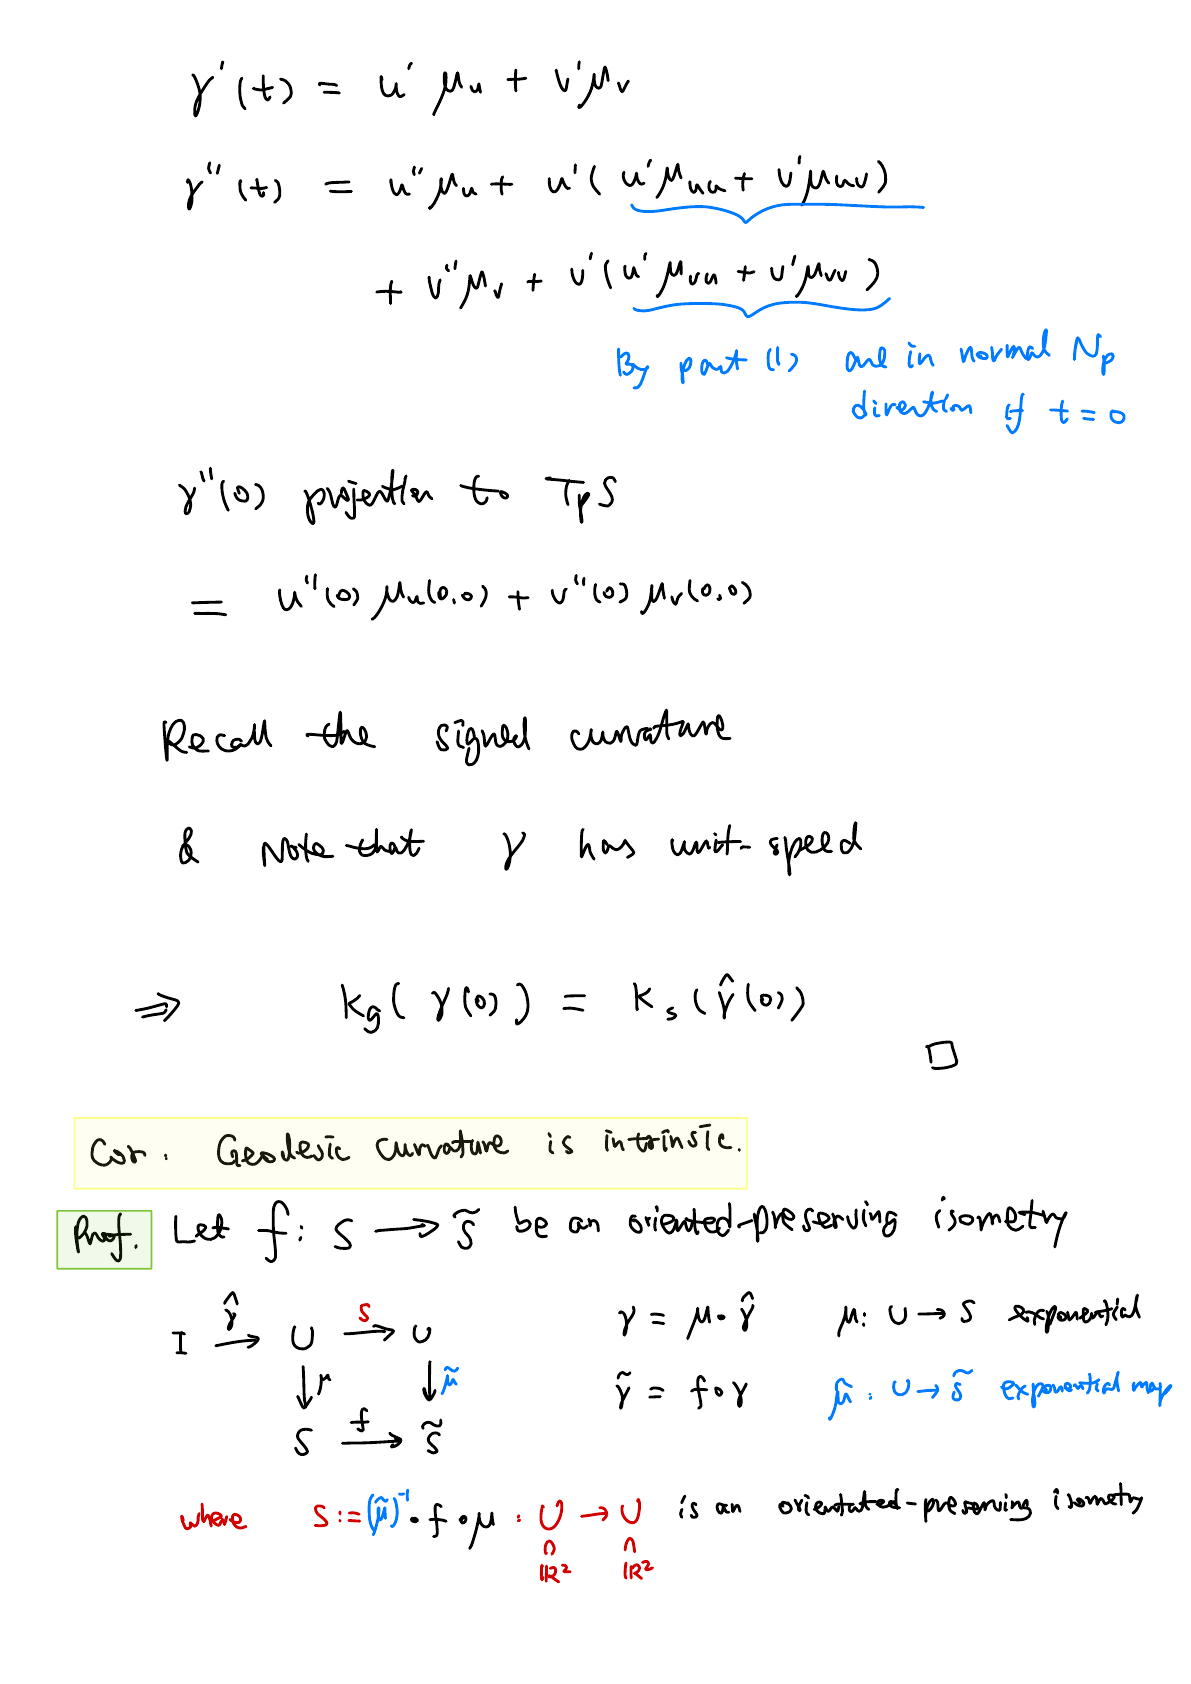 γ'(t) = u' μ_u + v' μ_v
γ''(t) = u'' μ_u + u' ( u' μ_uu + v' μ_uv )
+ v'' μ_v + v' ( u' μ_vu + v' μ_vv )
By part (1) are in normal N_p
direction if t = 0
γ''(0) projection to T_p S
= u''(0) μ_u(0,0) + v''(0) μ_v(0,0)
Recall the signed curvature
& Note that γ has unit-speed
⇒ K_g( γ(0) ) = K_s( γ̂(0) )
□
Cor. Geodesic curvature is intrinsic.
Proof. Let f : S → S̃ be an oriented-preserving isometry
I →^γ̂ U →^S U γ = μ∘γ̂ μ: U → S exponential
↓μ ↓μ̃ γ̃ = f∘γ μ̃ : U → S̃ exponential map
S →^f S̃
where S := (μ̃)^-1 ∘ f ∘ μ : U → U is an orientated-preserving isometry
∩ ∩
ℝ² ℝ²